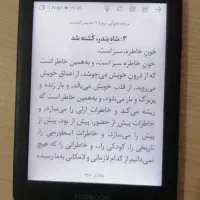 ۳: شاه بندر، کُشته شد
خونِ خاطره، سبز است.
خونِ خاطره سبز است، و به‌همین خاطر است
که از درون خویش می‌جوشد، از اعماق خویش
می‌روید، از قلب خویش می‌بالد، و بار زنده و
پربرگ و بار می‌شود، و به‌همین خاطر است که
ریشه می‌کند و خاطرات ازلی را می‌سازد، و
خاطرات پیش از حضور، پیش از بود، پیش از
پیش را می‌سازد، و خاطرات اسطوره‌یی را،
خاطرات کودکی را... و خاطراتی را که هیچ
نمی‌دانیم از کدام لازمانی و لامکانی به‌ما رسیده